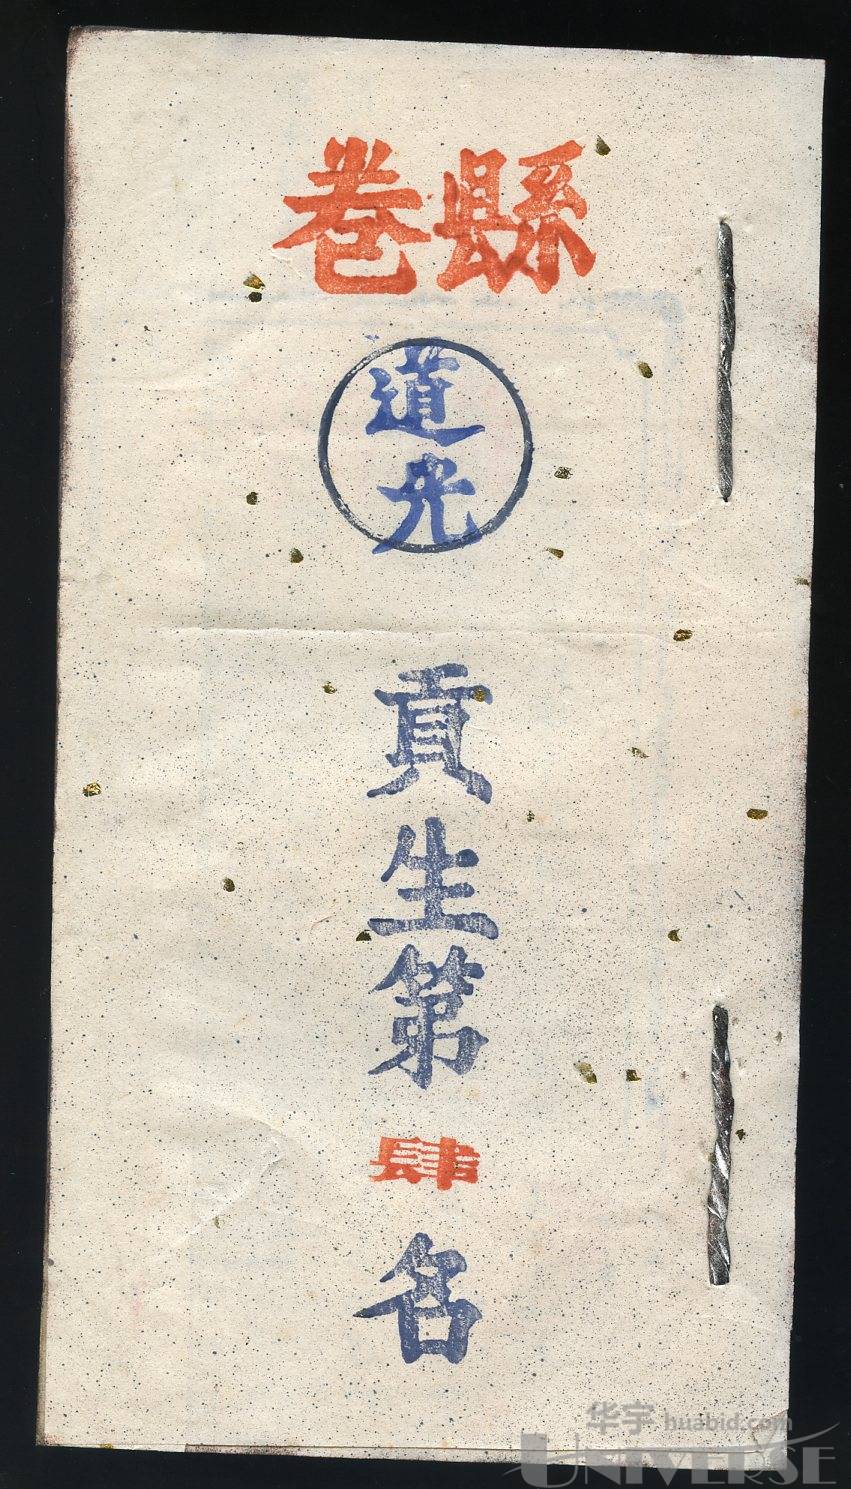 縣卷
道光
貢生第肆名
华宇 huabid.com
UNIVERSE